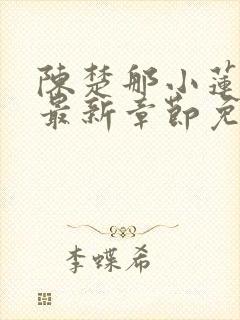 陳楚那小蓮
最新章節免
李蝶希